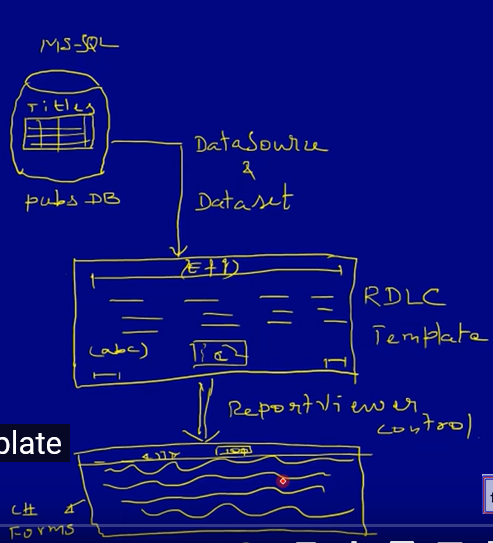 MS-SQL
Titles
pubs DB
DataSource
&
Dataset
RDLC
Template
(abc)
ReportViewer
control
plate
C#
Forms